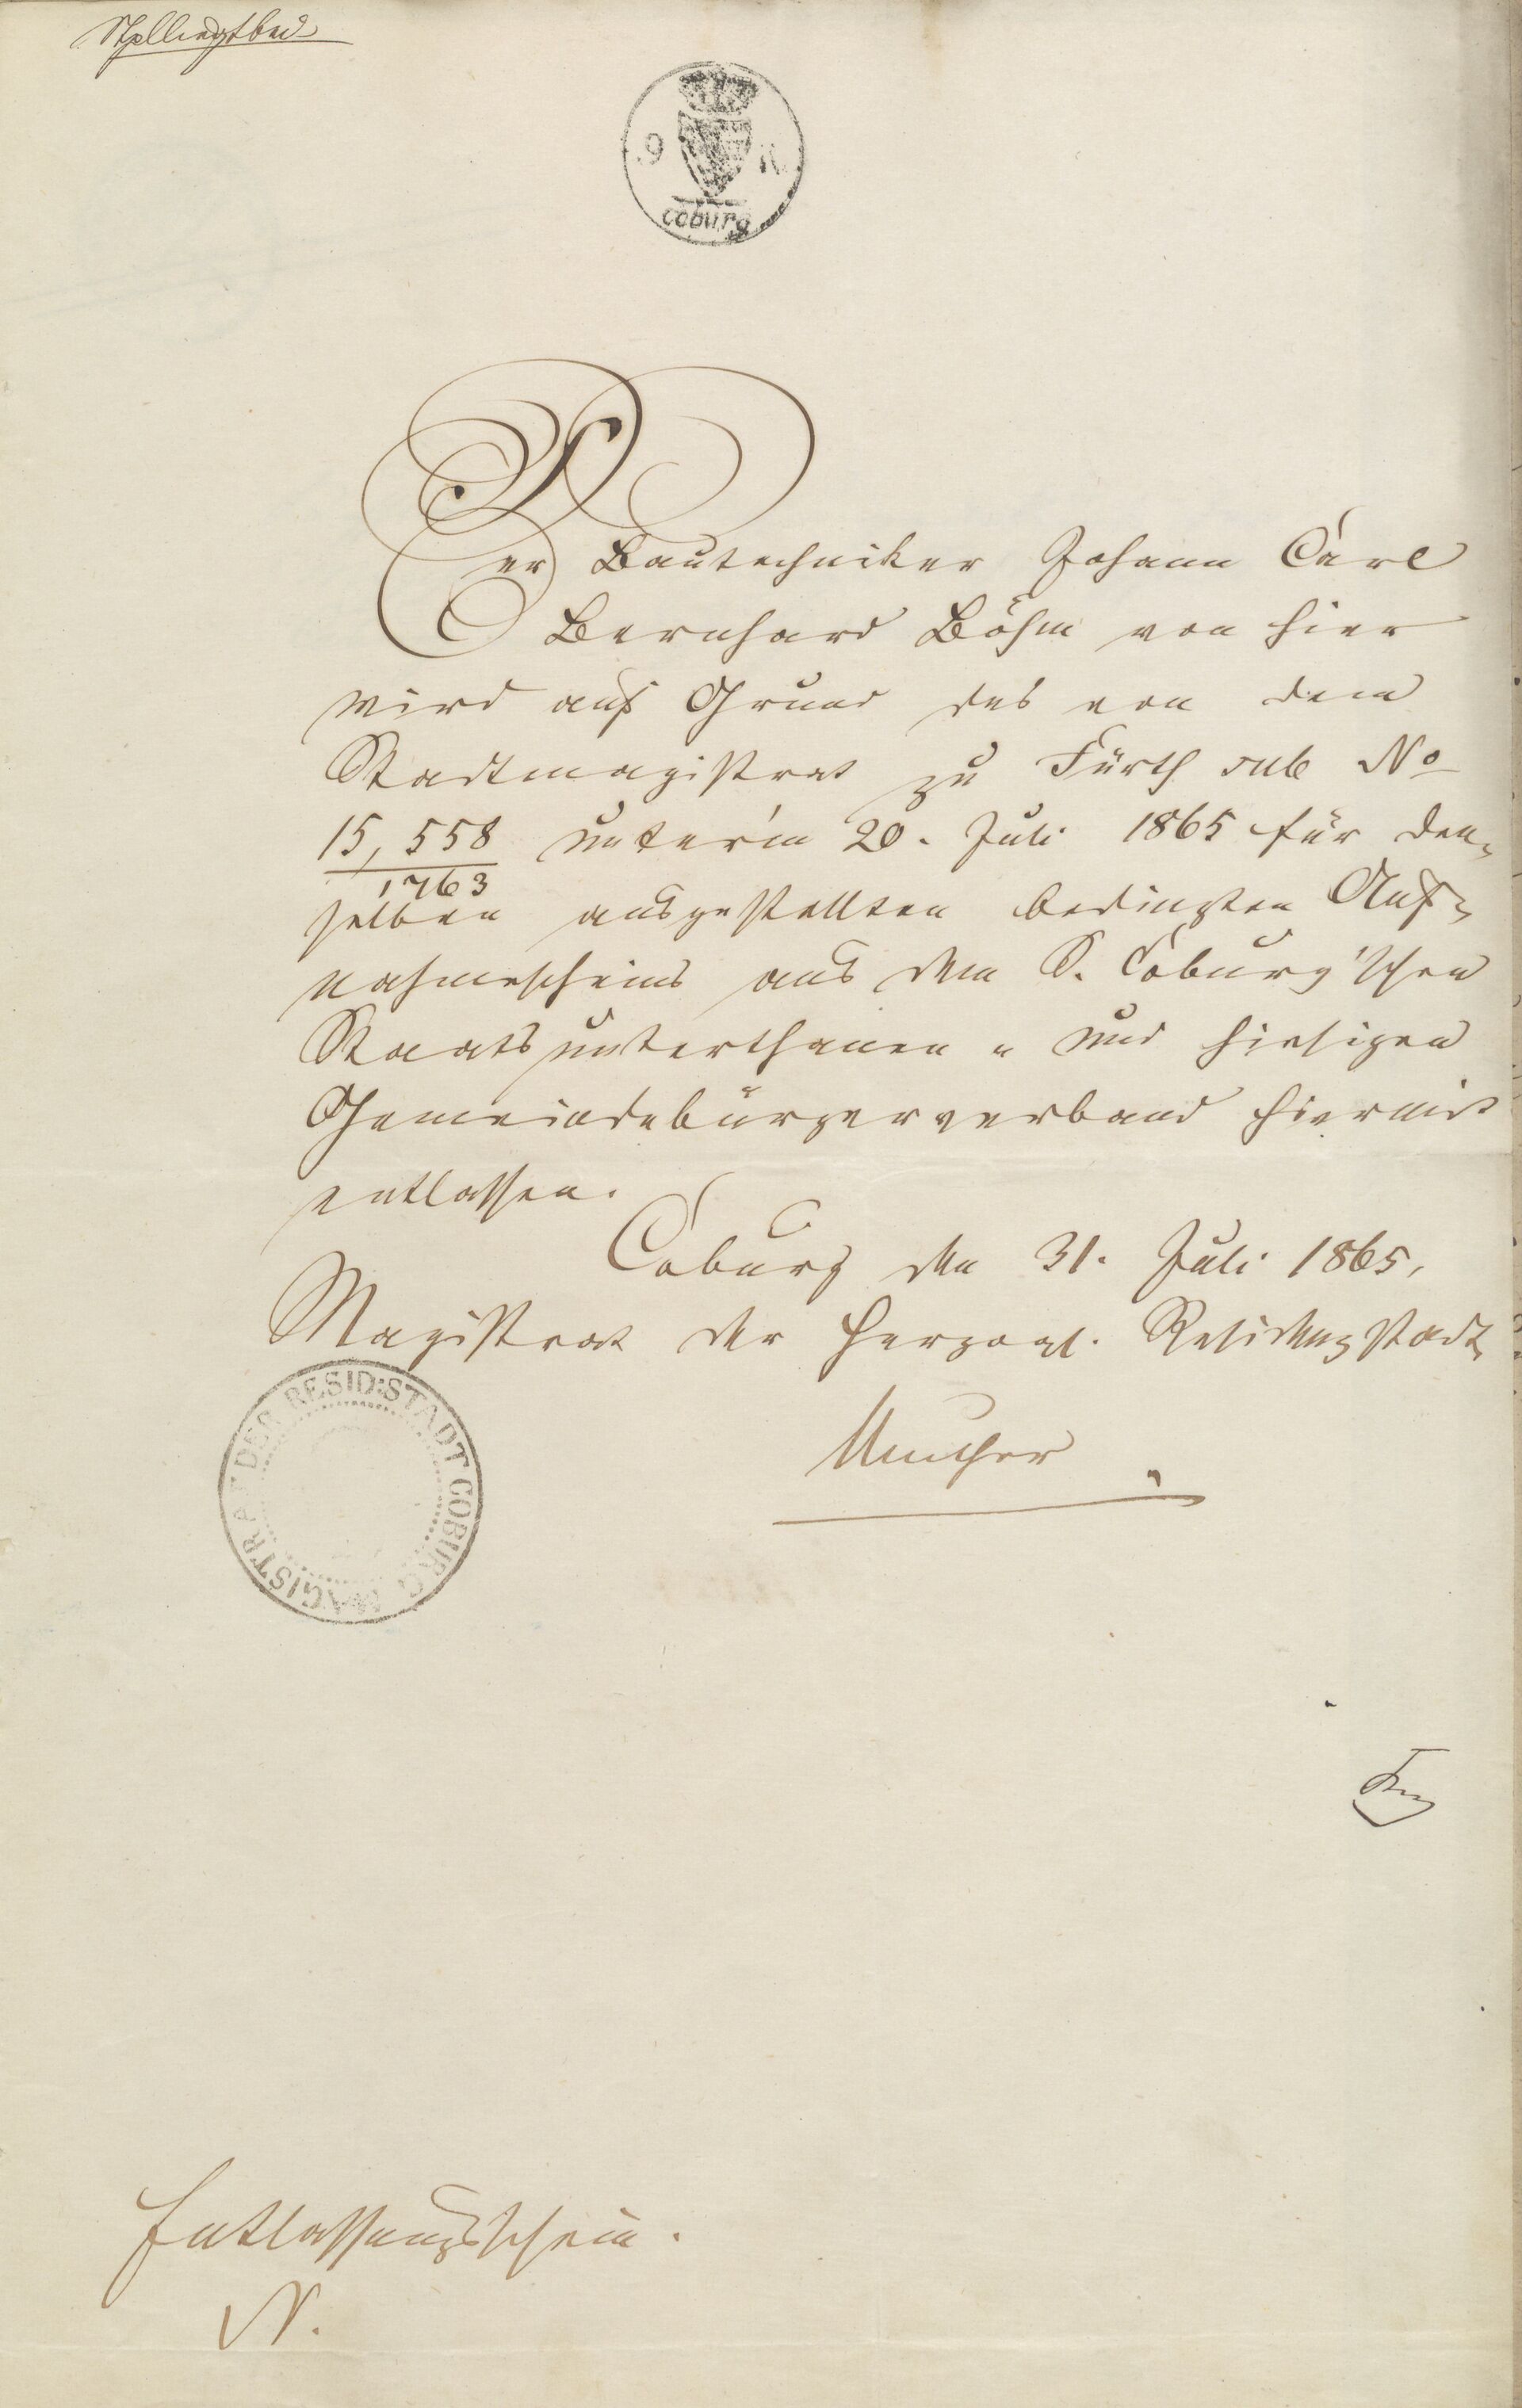 9 K.
coburg
Der Bautechniker Johann Carl
Bernhard Böhm von hier
wird auf Grund des von dem
Stadtmagistrat zu Fürth sub No
15,558
1763
unter'm 20. Juli 1865 für den-
selben ausgestellten bedingten Auf-
nahmescheins aus dem S. Coburg'schen
Staatsunterthanen- und hiesigen
Gemeindebürgerverband hiermit
entlassen.
Coburg den 31. Juli 1865.
Magistrat der Herzogl. Residenzstadt
Muther
MAGISTRAT DER RESID:STADT COBURG
Entlassungsschein.
N.